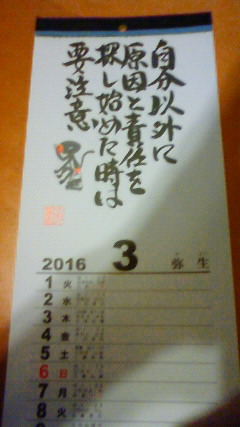 自分以外に
原因と責任を
探し始めた時は
要注意
2016 3 弥生
1 火
2 水
3 木
4 金
5 土
6 日
7 月
8 火